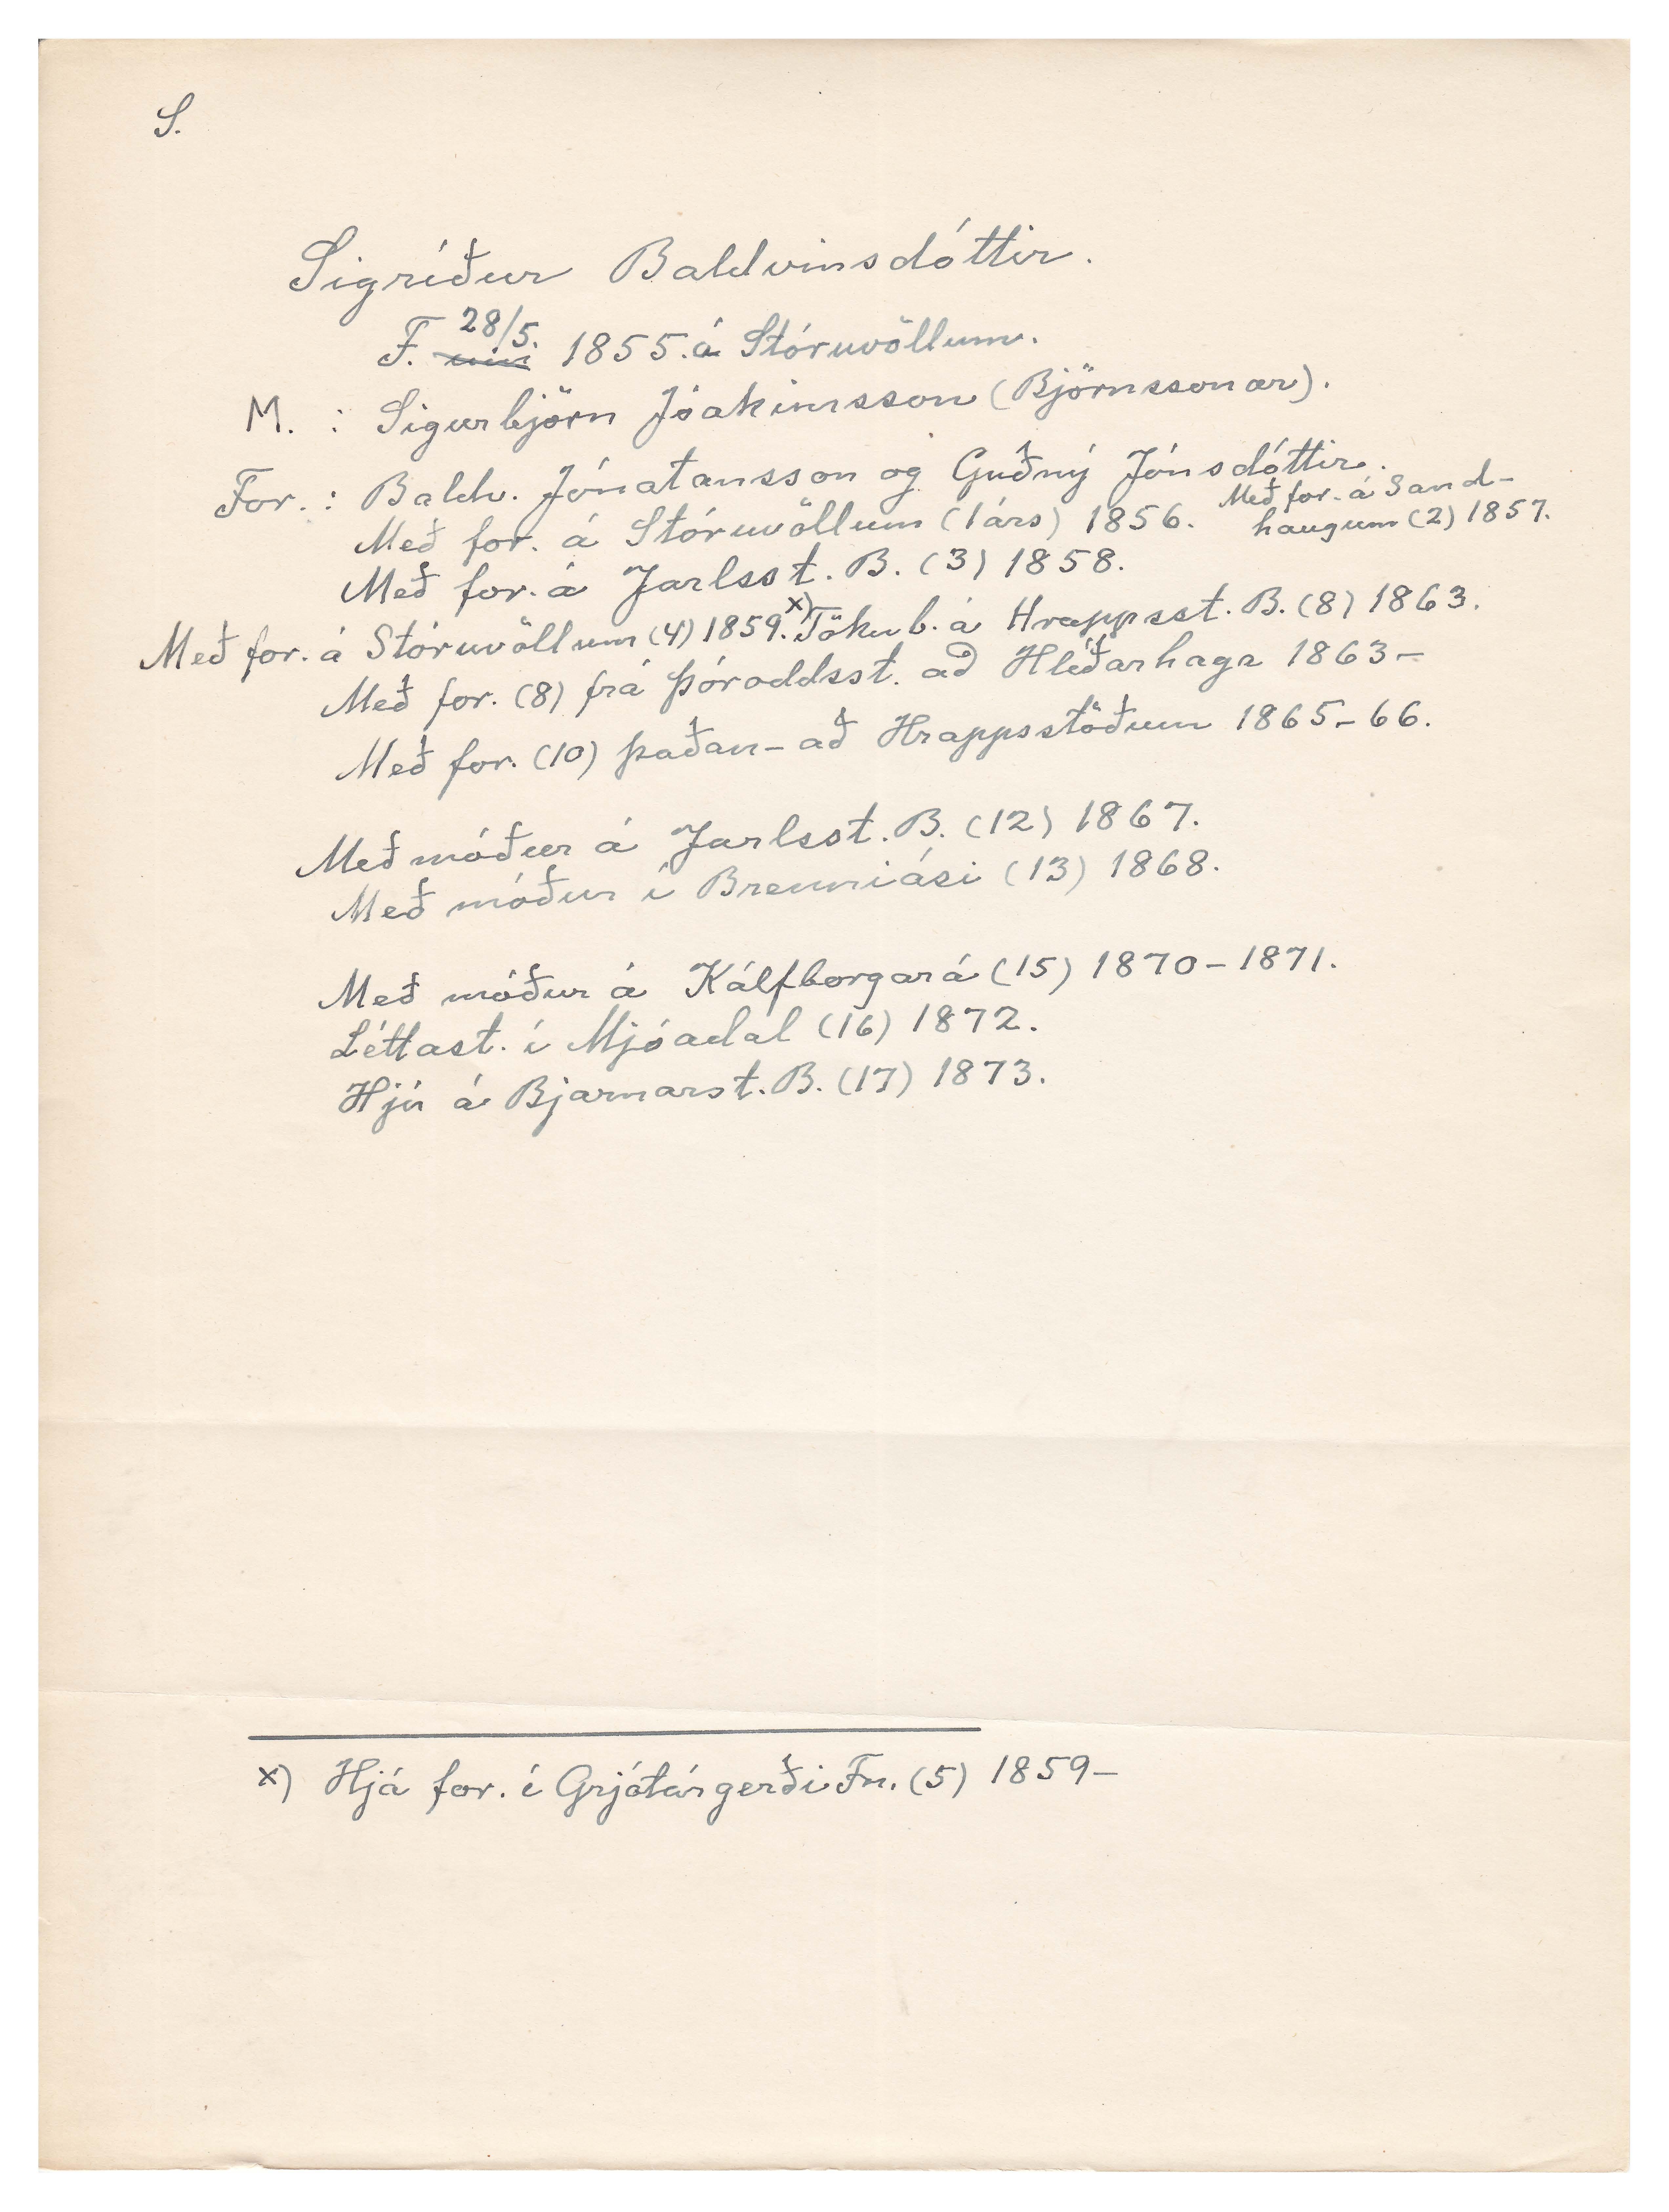 S.
Sigríður Baldvinsdóttir.
F. 28/5. 1855. á Stóruvöllum.
M. : Sigurbjörn Jóakimsson (Björnssonar).
For. : Baldv. Jónatansson og Guðný Jónsdóttir.
Með for. á Stóruvöllum (1 árs) 1856. Með for. á Sand-
haugum (2) 1857.
Með for. á Jarlsst. B. (3) 1858.
Með for. á Stóruvöllum (4) 1859. x) Tökub. á Hrappsst. B. (8) 1863.
Með for. (8) frá Þóroddsst. að Hlíðarhaga 1863-
Með for. (10) þaðan - að Hrappsstöðum 1865-66.
Með móður á Jarlsst. B. (12) 1867.
Með móður í Brenniási (13) 1868.
Með móður á Kálfborgará (15) 1870-1871.
Léttast. í Mjóadal (16) 1872.
Hjú á Bjarnarst. B. (17) 1873.
x) Hjá for. í Grjótárgerði Fn. (5) 1859-